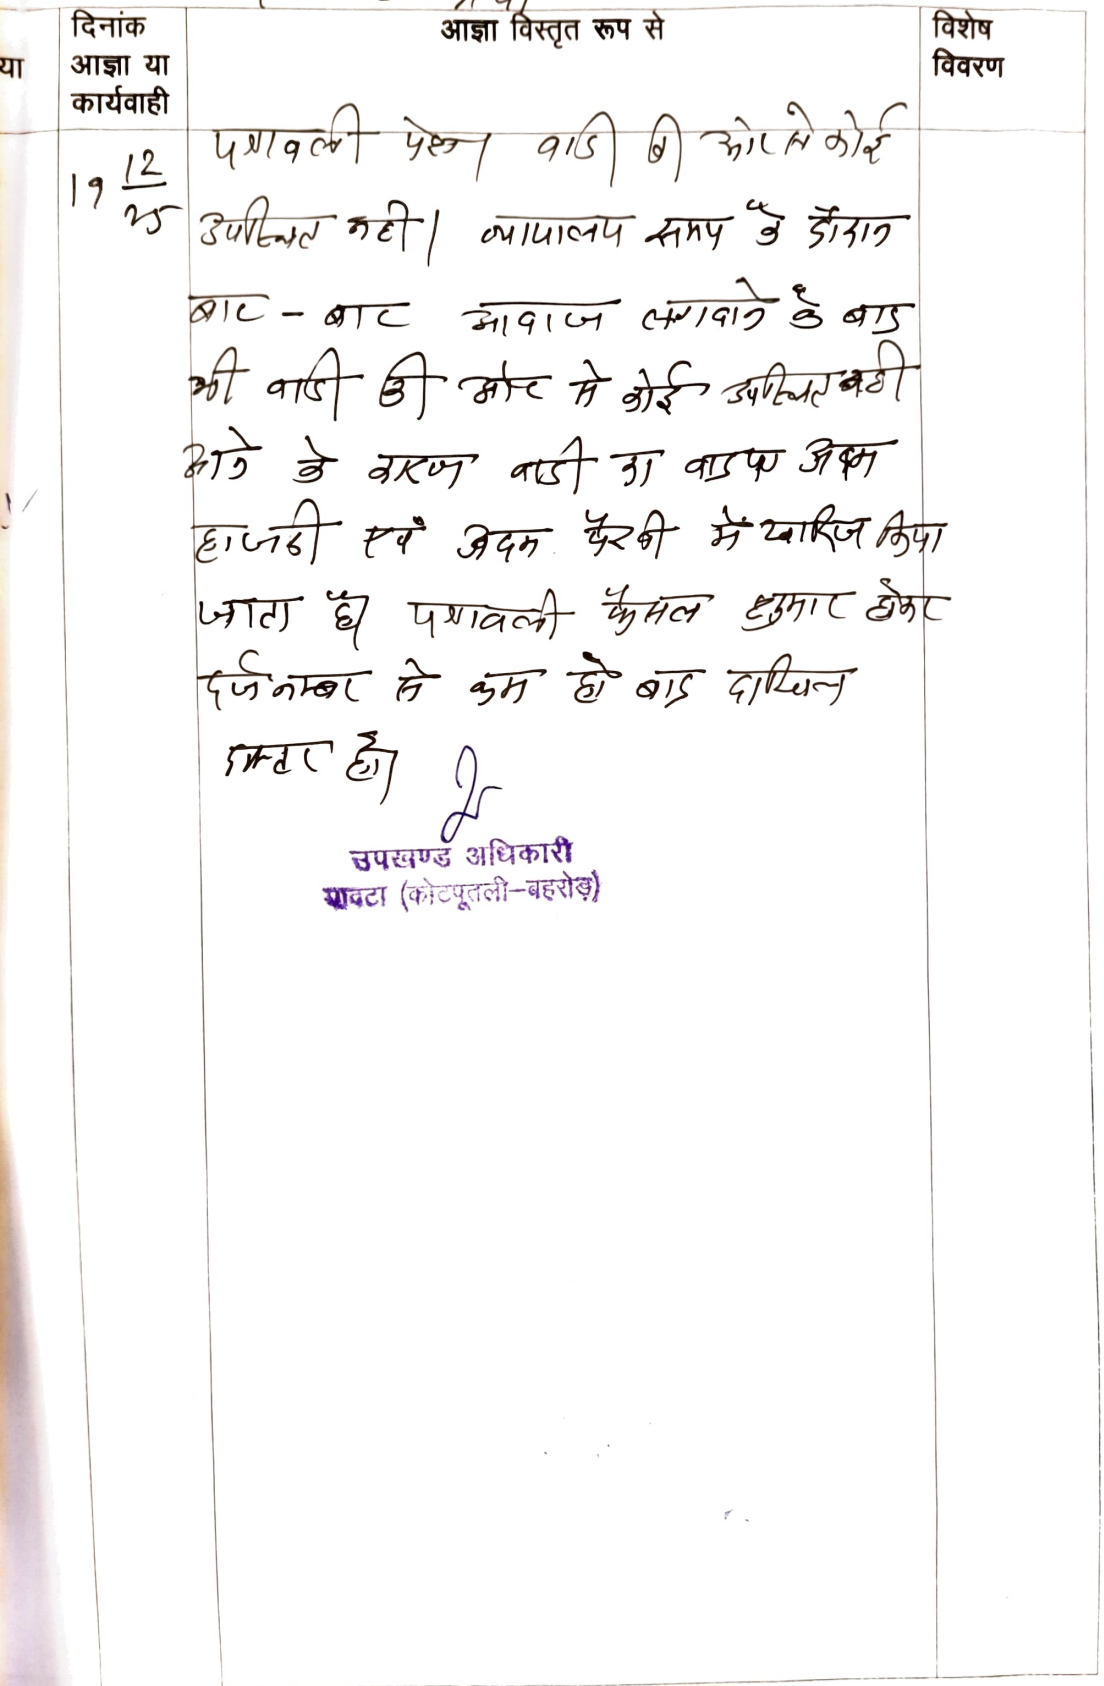 दिनांक
आज्ञा या
कार्यवाही
आज्ञा विस्तृत रूप से
विशेष
विवरण
या
19 12/25
पत्रावली पेश। वादी की ओर से कोई
उपस्थित नही। न्यायालय समय के दौरान
बार - बार आवाज लगवाने के बाद
भी वादी की ओर से कोई उपस्थित नही
आने के कारण वादी का वाद पत्र अदम
हाजरी एवं अदम पैरवी में खारिज किया
जाता है। पत्रावली फैसल शुमार होकर
दर्ज नम्बर से कम हो बाद दाखिल
दफ्तर हो।
उपखण्ड अधिकारी
पावटा (कोटपूतली-बहरोड़)